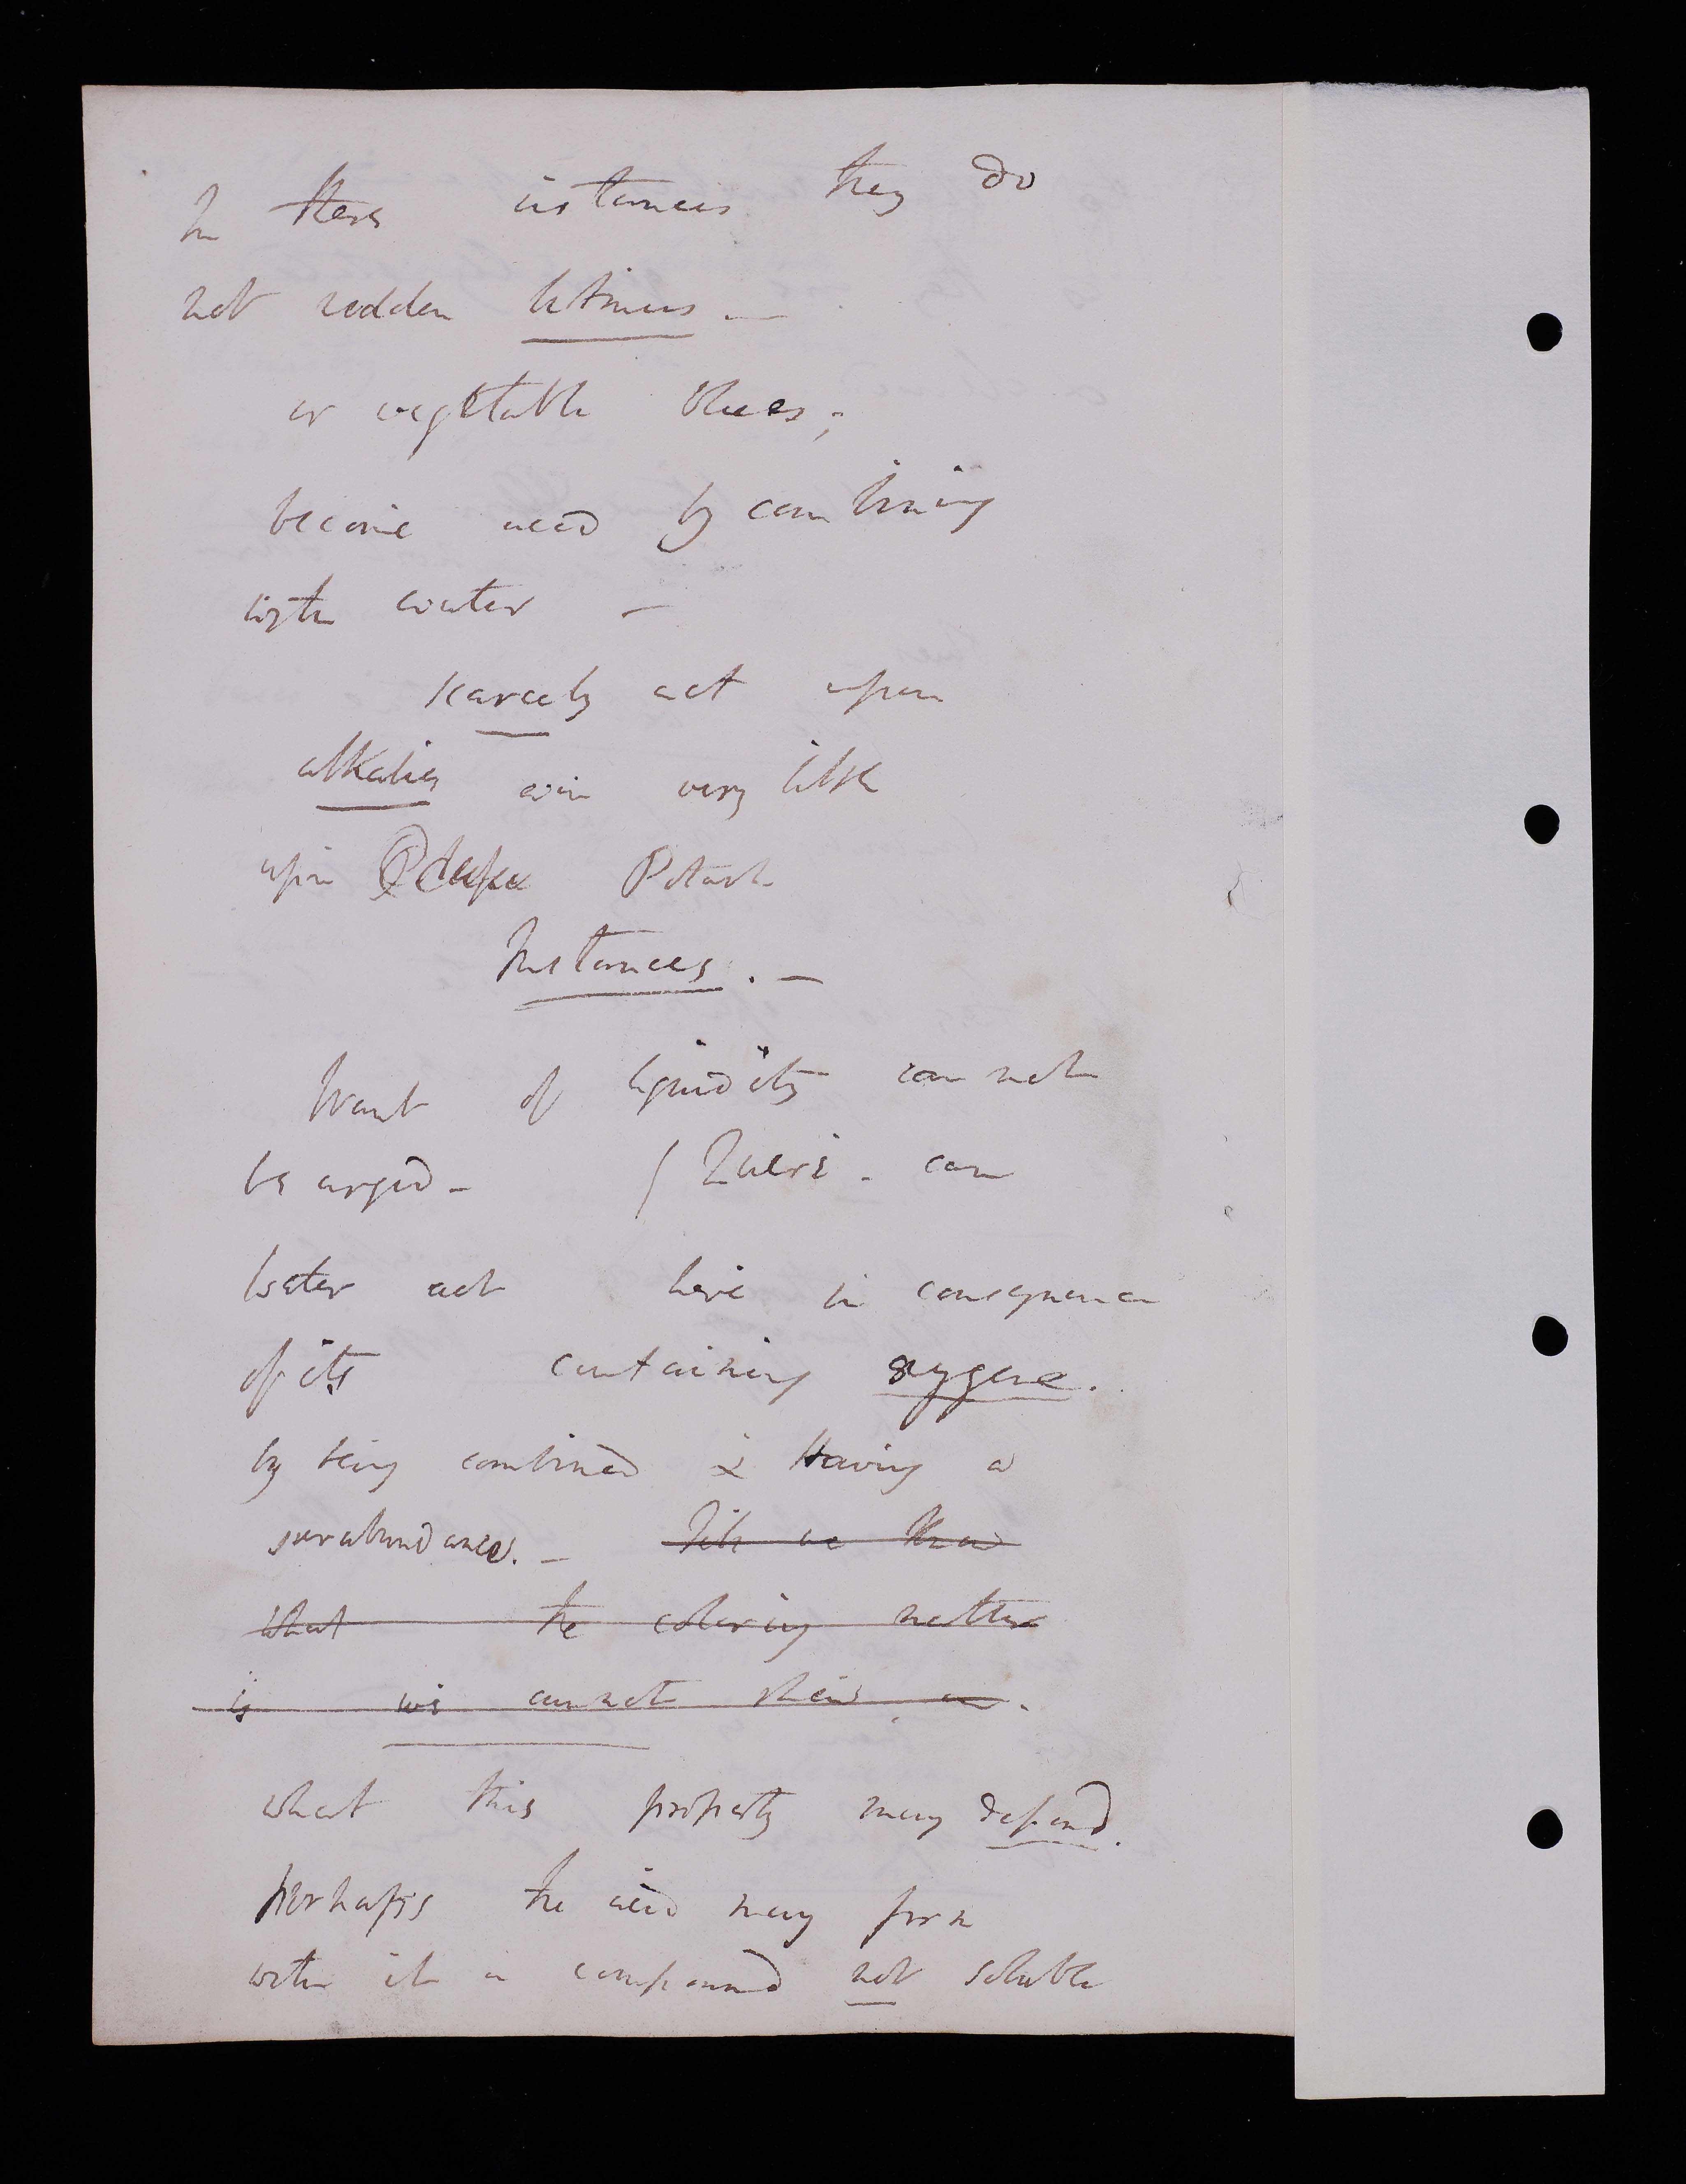 In these instances they do
not redden litmus —
or vegetable blues;
become acid by combining
with water —
scarcely act upon
alkalies even very little
upon Potash
Instances. —
Want of liquidity can not
be urged - / Quere - can
water act here in consequence
of its containing oxygene.
by being combined & Having a
surabundance. — Till we know
what the coloring matter
is we cannot shew on.
what this property may depend.
perhaps the acid may form
with it a compound not soluble